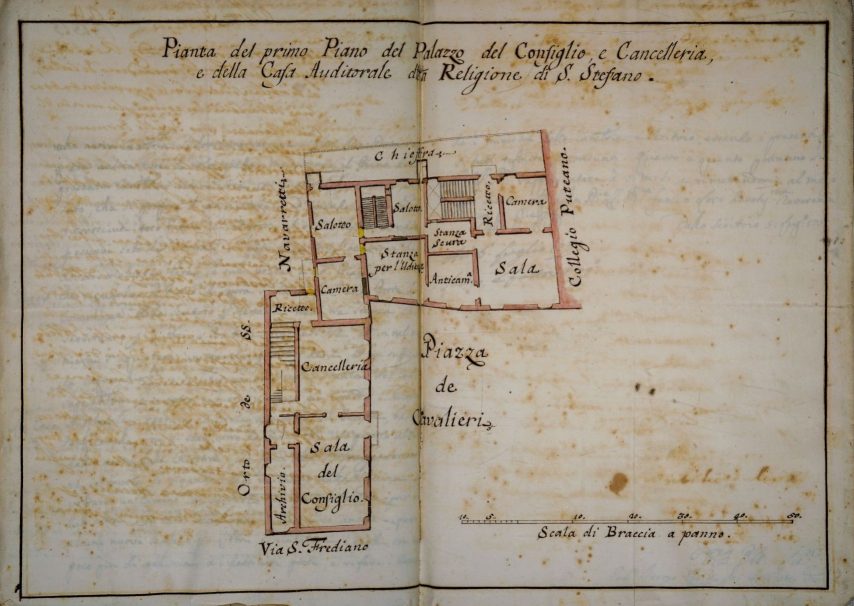 Pianta del primo Piano del Palazzo del Consiglio, e Cancelleria,
e della Casa Auditorale della Religione di S. Stefano.
Chiostra
Navarretti
Collegio Puteano.
Salotto
Salott.
Ricetto
Camera
Stanza
Scura
Stanza
per l'Udito.
Anticam.ª
Sala
Camera
Ricetto.
Cancelleria
Piazza
de
Cavalieri
Orto de SS.
Sala
del
Consiglio.
Archivio.
Via S. Frediano
10. 5. 10. 20. 30. 40. 50.
Scala di Braccia a panno.